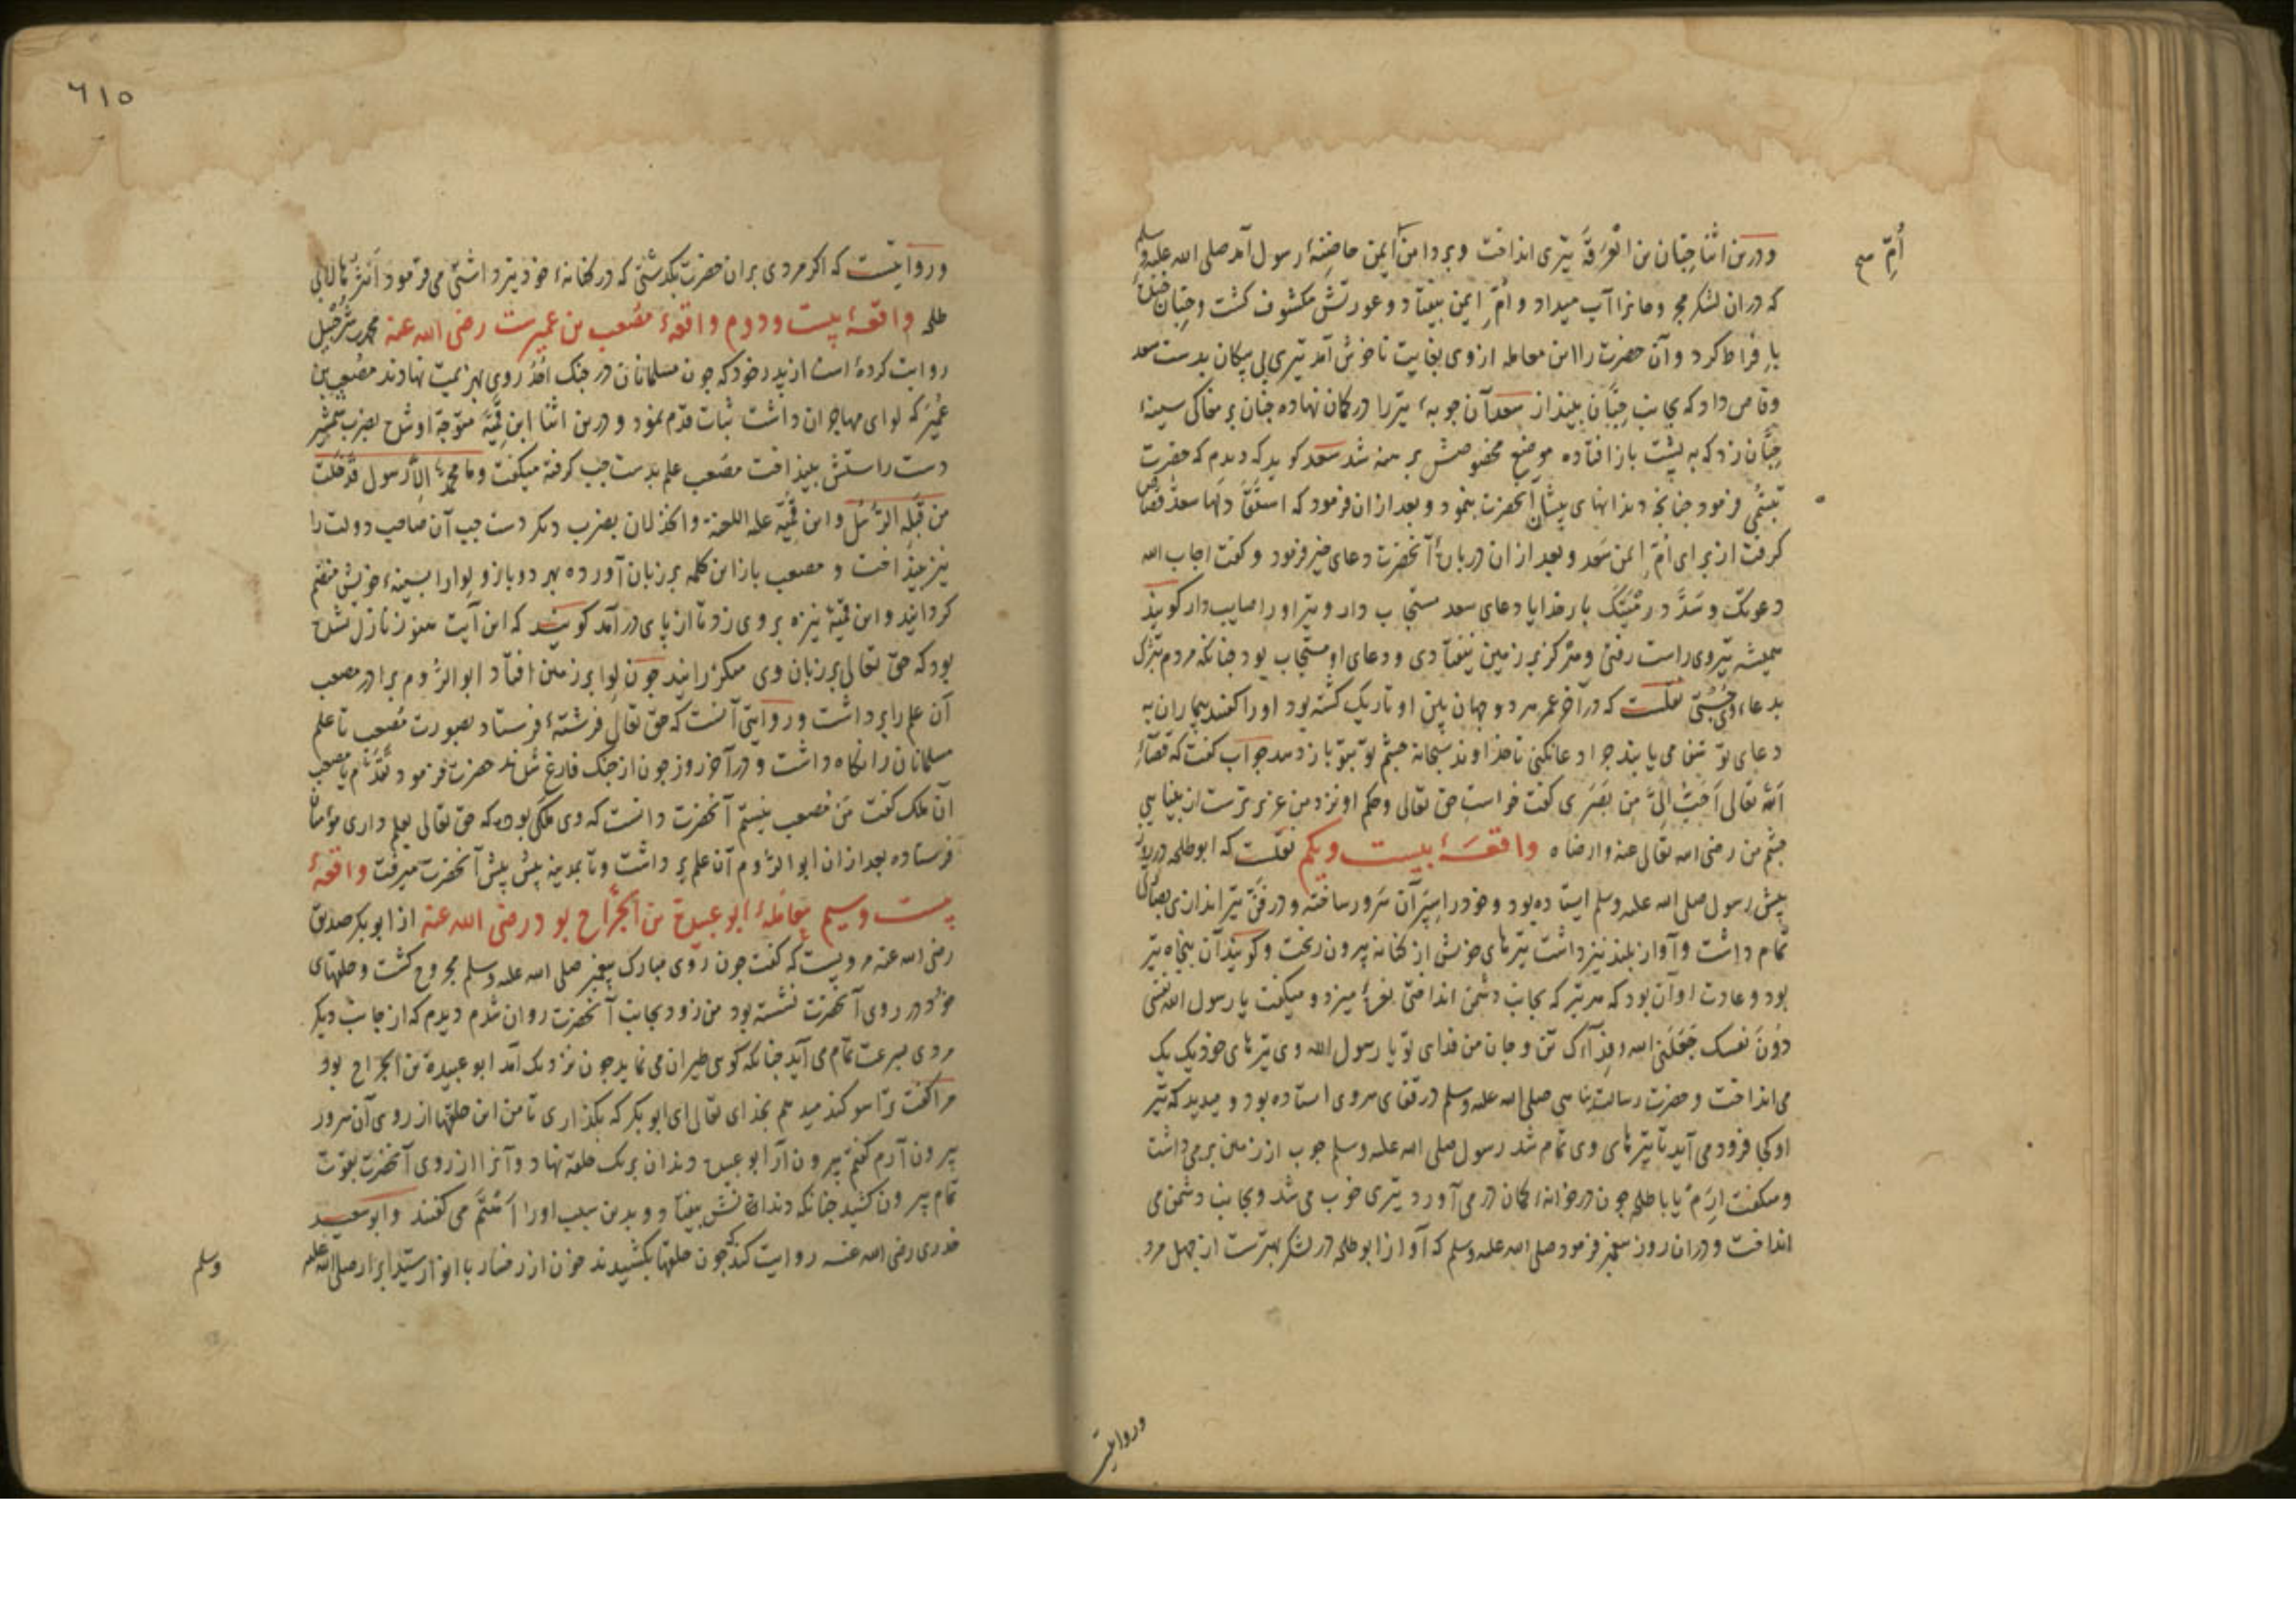 ودرین اثنا حِبّان بن العَرِقَة تیری انداخت و بر دامن ایمن حاضنهٔ رسول آمد صلی الله علیه وسلم
اُمّ صح
که دران لشکر مجروحانرا آب میداد و اُمّ ایمن بیفتاد و عورتش مکشوف کشت و حِبّان خنده
بافراط کرد و آن حضرت را این معامله از وی بغایت ناخوش آمد تیری بی پیکان بدست سعد
وقاص داد که بجانب حِبَّان بینداز سعد آن چوبهٔ تیر را در کمان نهاده چنان بر مغاکی سینهٔ
حِبَّان زد که به پشت باز افتاده موضع مخصوصش برهنه شد سعد کوید که دیدم که حضرت
تبسّمی فرمود چنانچه دندانهای پیشان آنحضرت بنمود و بعد ازان فرمود که استقاد لها سعد قصاص
کرفت از برای اُمّ ایمن سعد و بعد از ان دربارهٔ آنحضرت دعای خیر فرمود و کفت اجاب الله
دعوتک وسَدَّد رَمْیَتَکَ بار خدایا دعای سعد مستجاب دار و تیر او را صایب دار کویند
همیشه تیر وی راست رفتی و هرکز بر زمین نیفتادی و دعای او مستجاب بود چنانکه مردم تبرک
بدعاء وی جُستی نقلست که در آخر عمر هر دو جهان بین او تاریک کشته بود او را کفتند بیماران به
دعای تو شفا می یابند چرا دعا نکنی تا خداوند سبحانه چشم تو بتو باز دهد جواب کفت که قضآءُ
الله تعالی اَحَبُّ اِلَیَّ مِن بَصَری کفت خواست حق تعالی و حکم او نزد من عزیزترست از بینایی
چشم من رضی الله تعالی عنه وارضاه واقعهٔ بیست ویکم نقلست که ابوطلحه در
پیش رسول صلی الله علیه وسلم ایستاده بود و خود را سپر آن سرور ساخته و در فنّ تیراندازی
تمام داشت و آواز بلند نیز داشت تیرهای خویش از کنانه بیرون ریخت و کویند آن پنجاه تیر
بود و عادت او آن بود که هر تیر که بجانب دشمن انداختی نعرهٔ میزد و میکفت یا رسول الله نفسی
دُونَ نَفسک جَعَلَنی الله فِدَآءَک تن و جان من فدای تو یا رسول الله وی تیرهای خود یک یک
می انداخت و حضرت رسالت پناهی صلی الله علیه وسلم در قفای سر وی استاده بود و میدید که تیر
او کجا فرود می آید تا تیرهای وی تمام شد رسول صلی الله علیه وسلم چوب از زمین برمی داشت
و میکفت اِرمِ یا باطلحه چون در خانهٔ کمان در می آورد تیری خوب می شد و بجانب دشمن می
انداخت و دران روز پیغمبر فرمود صلی الله علیه وسلم که آواز ابوطلحه در لشکر بهترست از چهل مرد
وروایت
٦١٥
وروایت‌ست که اکر مردی بران حضرت بکذشتی که در کنانهٔ خود تیر داشتی می فرمود اُنثرها لابی
طلحه واقعهٔ بیست ودوم واقعهٔ مُصعب بن عمیرست رضی الله عنه محمد بن شُرَحبیل
روایت کرده است از پدر خود که چون مسلمانان در جنک اُحُد روی بهزیمت نهادند مصعب بن
عُمَیْر که لوای مهاجران داشت ثبات قدم نمود و درین اثنا ابن قمیّه متوجه او شده بضرب شمشیر
دست راستش بینداخت مصعب علم بدست چپ کرفته میکفت وما محمدٌ اِلاّ رسول قد خلت
من قبله الرُّسُل و ابن قمیّه علیه اللعنة والخذلان بضرب دیکر دست چپ آن صاحب دولت را
نیز بینداخت و مصعب باز این کلمه بر زبان آورده بهر دو بازو لوا را بسینهٔ خویش منضم
کردانید و ابن قمیّه نیزه بر وی زد تا از پای درآمد کویند که این آیت هنوز نازل نشده
بود که حق تعالی بر زبان وی میکذرانید چون لوا بر زمین افتاد ابو الرّوم برادر مصعب
آن علم را برداشت و روایتی آنست که حق تعالی فرشتهٔ فرستاد بصورت مُصعب تا علم
مسلمانان را نکاه داشت و در آخر روز چون از جنک فارغ شدند حضرت فرمود تقدّم یا مصعب
آن ملک کفت من مصعب نیستم آنحضرت دانست که وی ملکی بوده که حق تعالی بعلم داری مؤمنان
فرستاده بعد ازان ابو الرّوم آن علم برداشت و تا بمدینه پیش پیش آنحضرت میرفت واقعهٔ
بیست وسیم معاملهٔ ابوعبیدة بن الجرّاح بود رضی الله عنه از ابوبکر صدیق
رضی الله عنه مرویست که کفت چون روی مبارک پیغمبر صلی الله علیه وسلم مجروح کشت و حلقهای
خود در روی آنحضرت نشسته بود من زود بجانب آنحضرت روان شدم دیدم که از جانب دیکر
مردی بسرعت تمام می آید چنانکه کوی طیران می نماید چون نزدیک آمد ابو عبیدة بن الجراح بود
مرا کفت ترا سوکند میدهم بخدای تعالی ای ابوبکر که بکذاری تا من این حلقها از روی آن سرور
بیرون آرم کفتم بیرون آر ابو عبیده دندان بر یک حلقه نهاد و آنرا از روی آنحضرت بقوّت
تمام بیرون کشید چنانکه دندانش بیفتاد و بدین سبب او را اَهتَم می کفتند وابو سعید
خدری رضی الله عنه روایت کند که چون حلقها بکشیدند خون از رخسار با انوار سیّد ابرار صلی الله علیه
وسلم